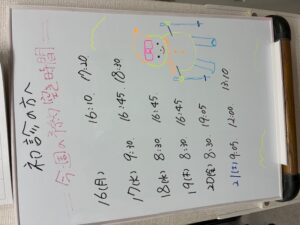 初診の方へ
今週の予約空き時間
16(月) 16:10 17:20
17(火) 9:30 16:45 18:30
18(水) 8:30 16:45
19(木) 8:30 16:45
20(金) 8:30 19:05
21(土) 9:05 12:00 13:10